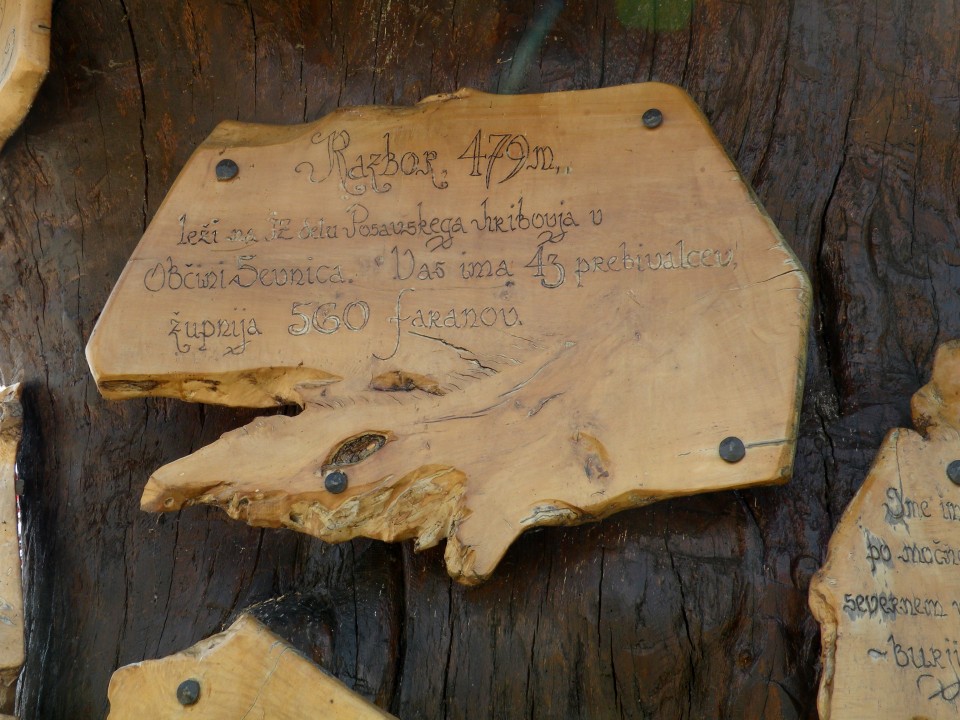 Razbor, 479m,
leži na JZ delu Posavskega hribovja v
Občini Sevnica. Vas ima 43 prebivalcev,
župnija 560 faranov.
Ime im
po močne
severnem v
~burji